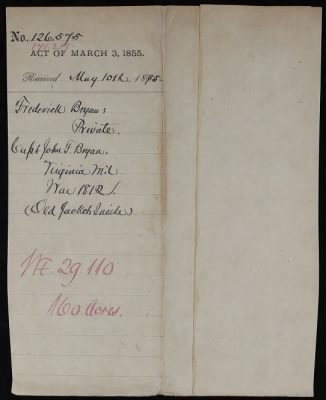 No. 126,575
ACT OF MARCH 3, 1855.
Received May 10th, 1855.
Frederick Bryan;
Private.
Capt John F. Bryan.
Virginia Mil
War 1812/.
(Old Jackets Inside)
29 110
160 Acres.